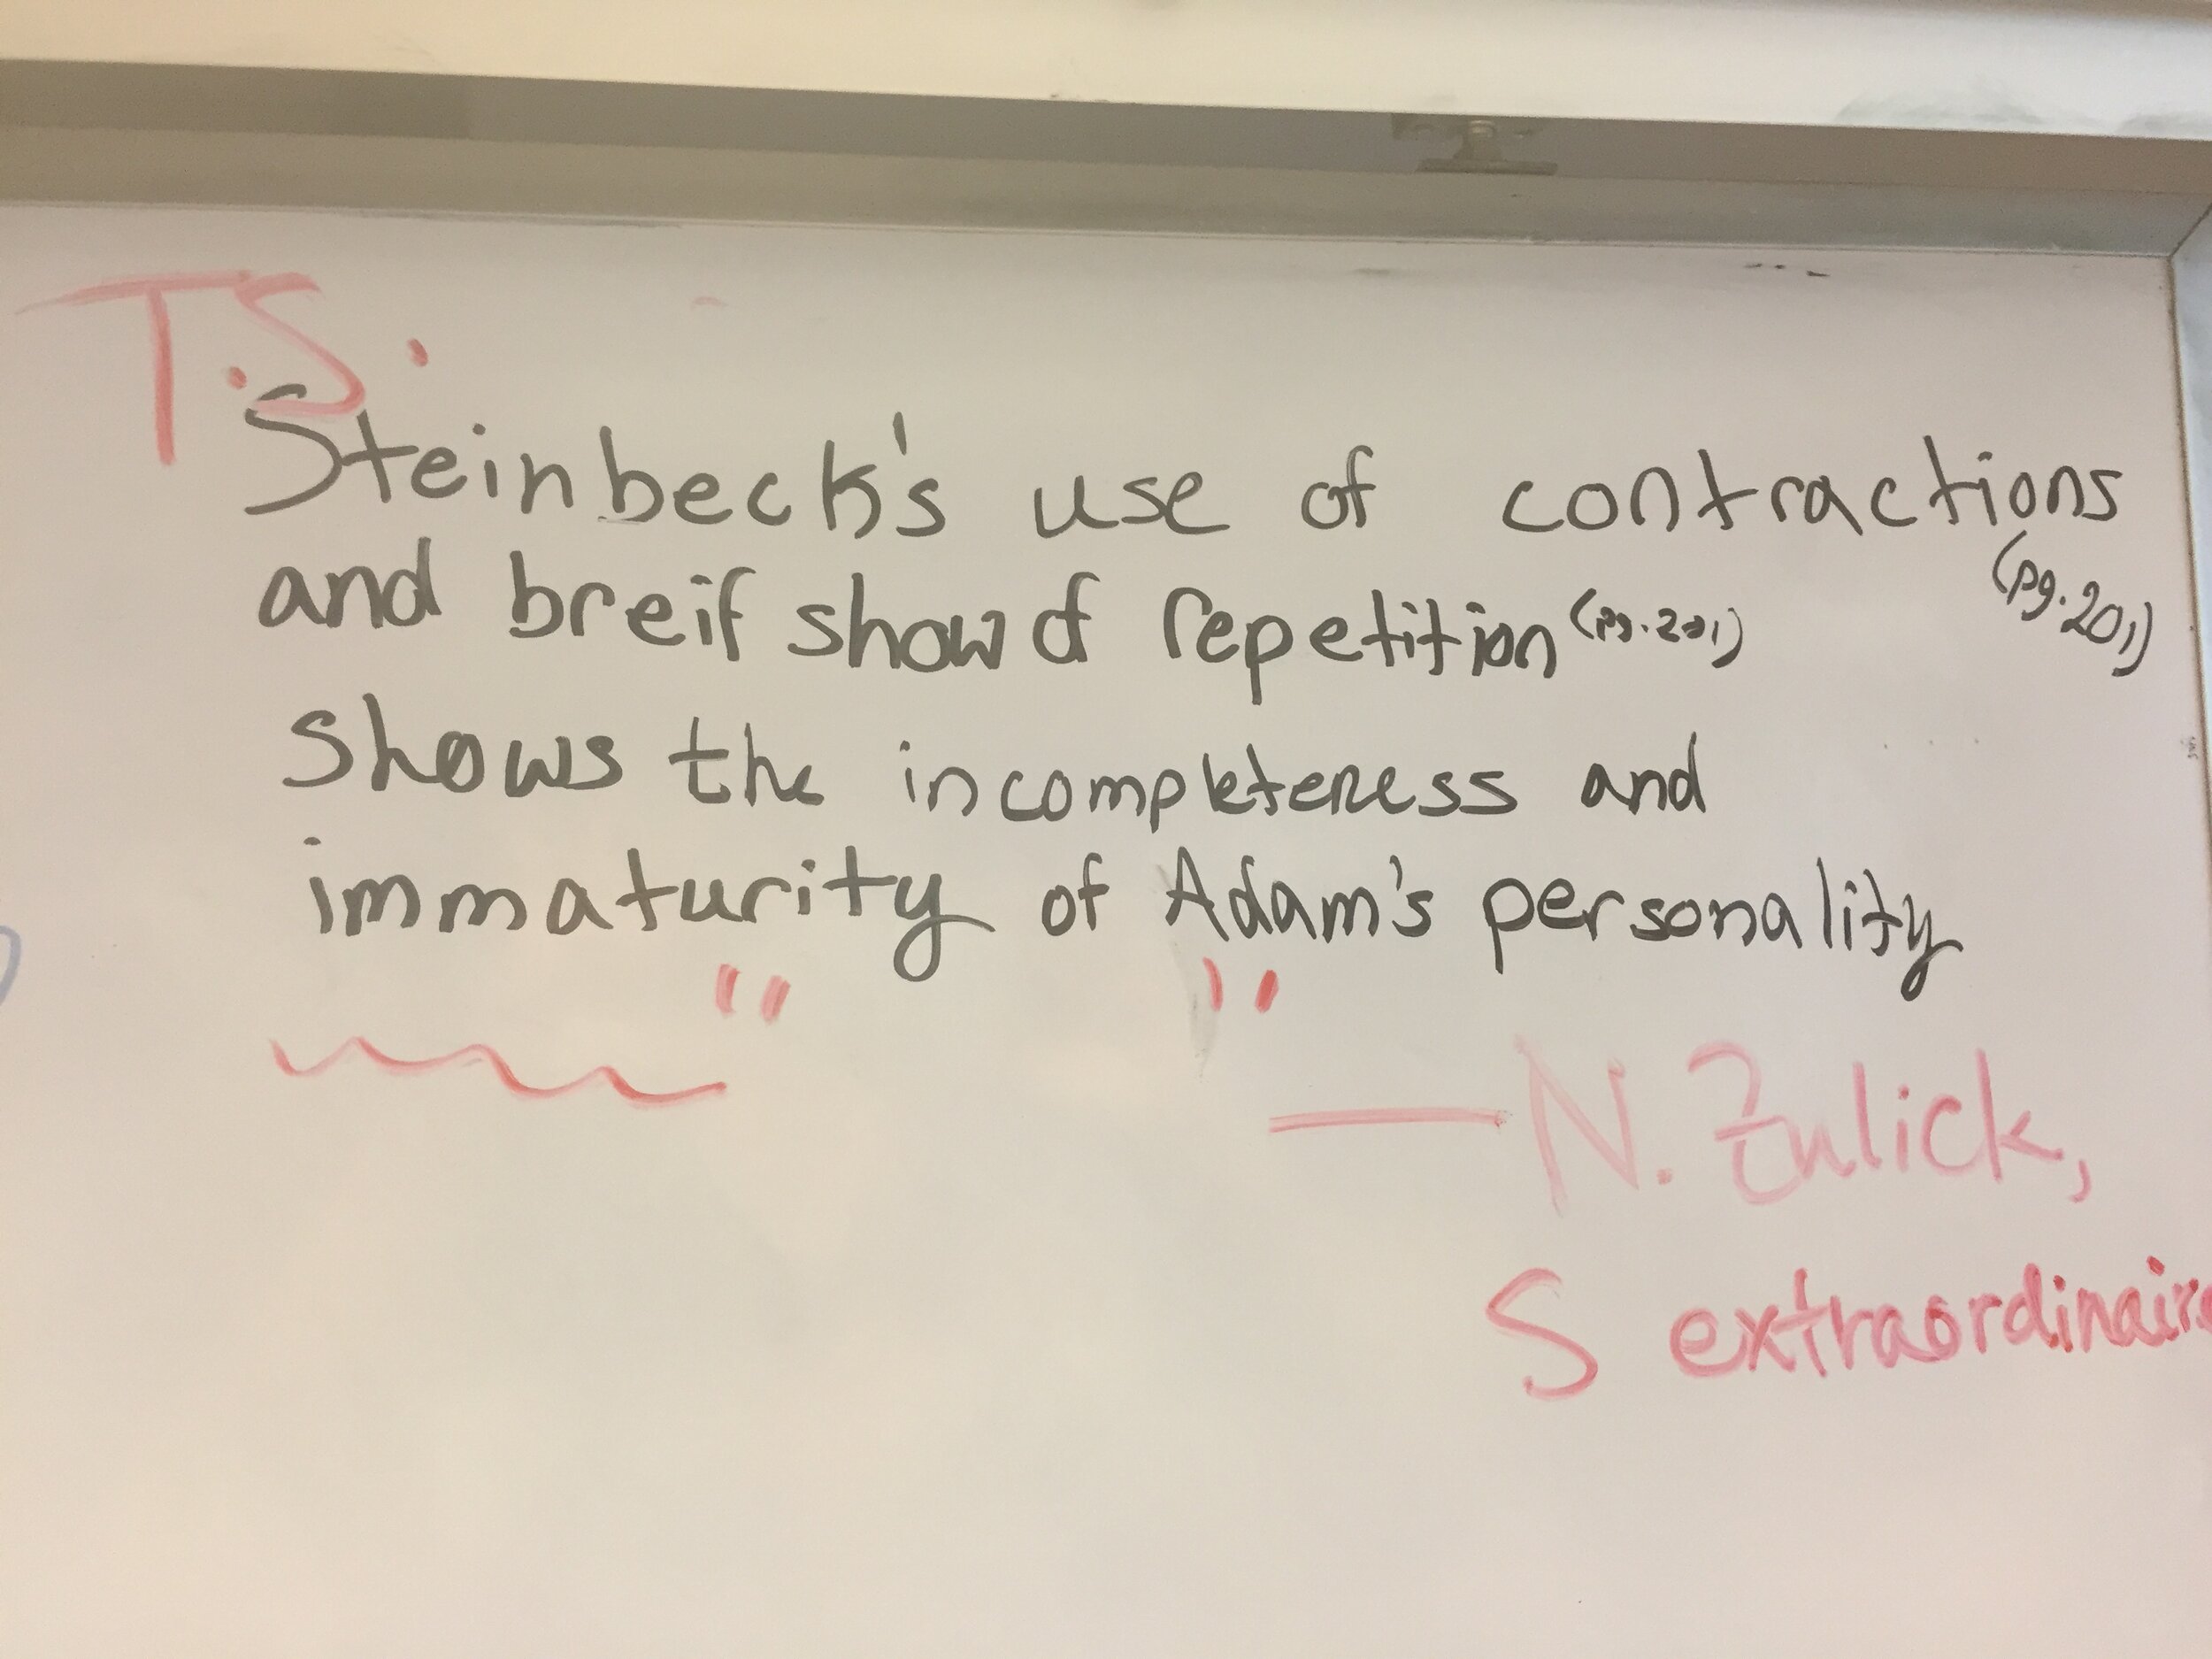 T.S.
Steinbeck's use of contractions
(pg. 201)
and breif show of repetition (pg. 201)
shows the incompleteness and
immaturity of Adam's personality
" "
— N. Zulick,
S extraordinaire